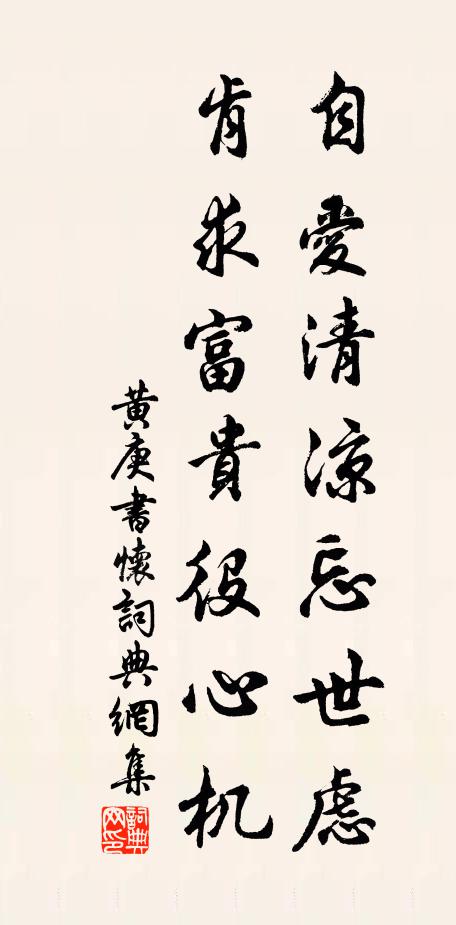 自愛清涼忘世慮
肯求富貴役心机
黃庚書懷詞典網集
詞典网印